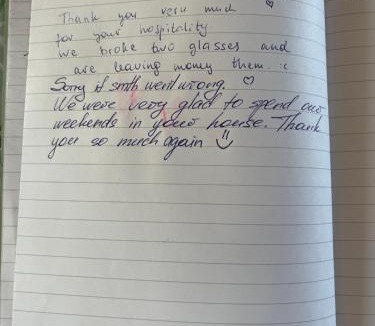 Thank you very much
for your hospitality
we broke two glasses and
are leaving money them :c
Sorry if smth went wrong. ♡
We were very glad to spend our
weekends in your house. Thank
you so much again